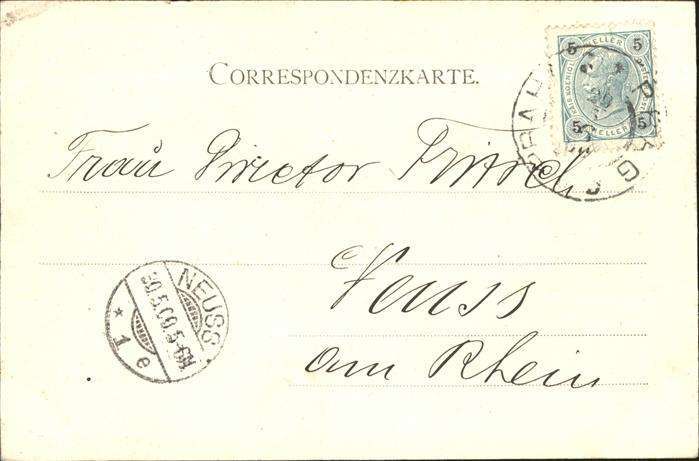 CORRESPONDENZKARTE.
5 HELLER 5
5 HELLER 5
PRAHA PRAG
Frau Director Fritsch
Neuss
am Rhein
NEUSS
30.5.00.5-6N
* 1 e